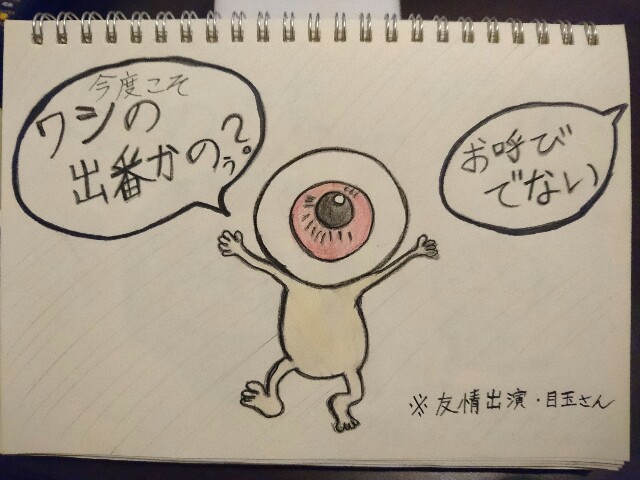 今度こそ
ワシの
出番かのぅ?
お呼び
でない
※友情出演・目玉さん